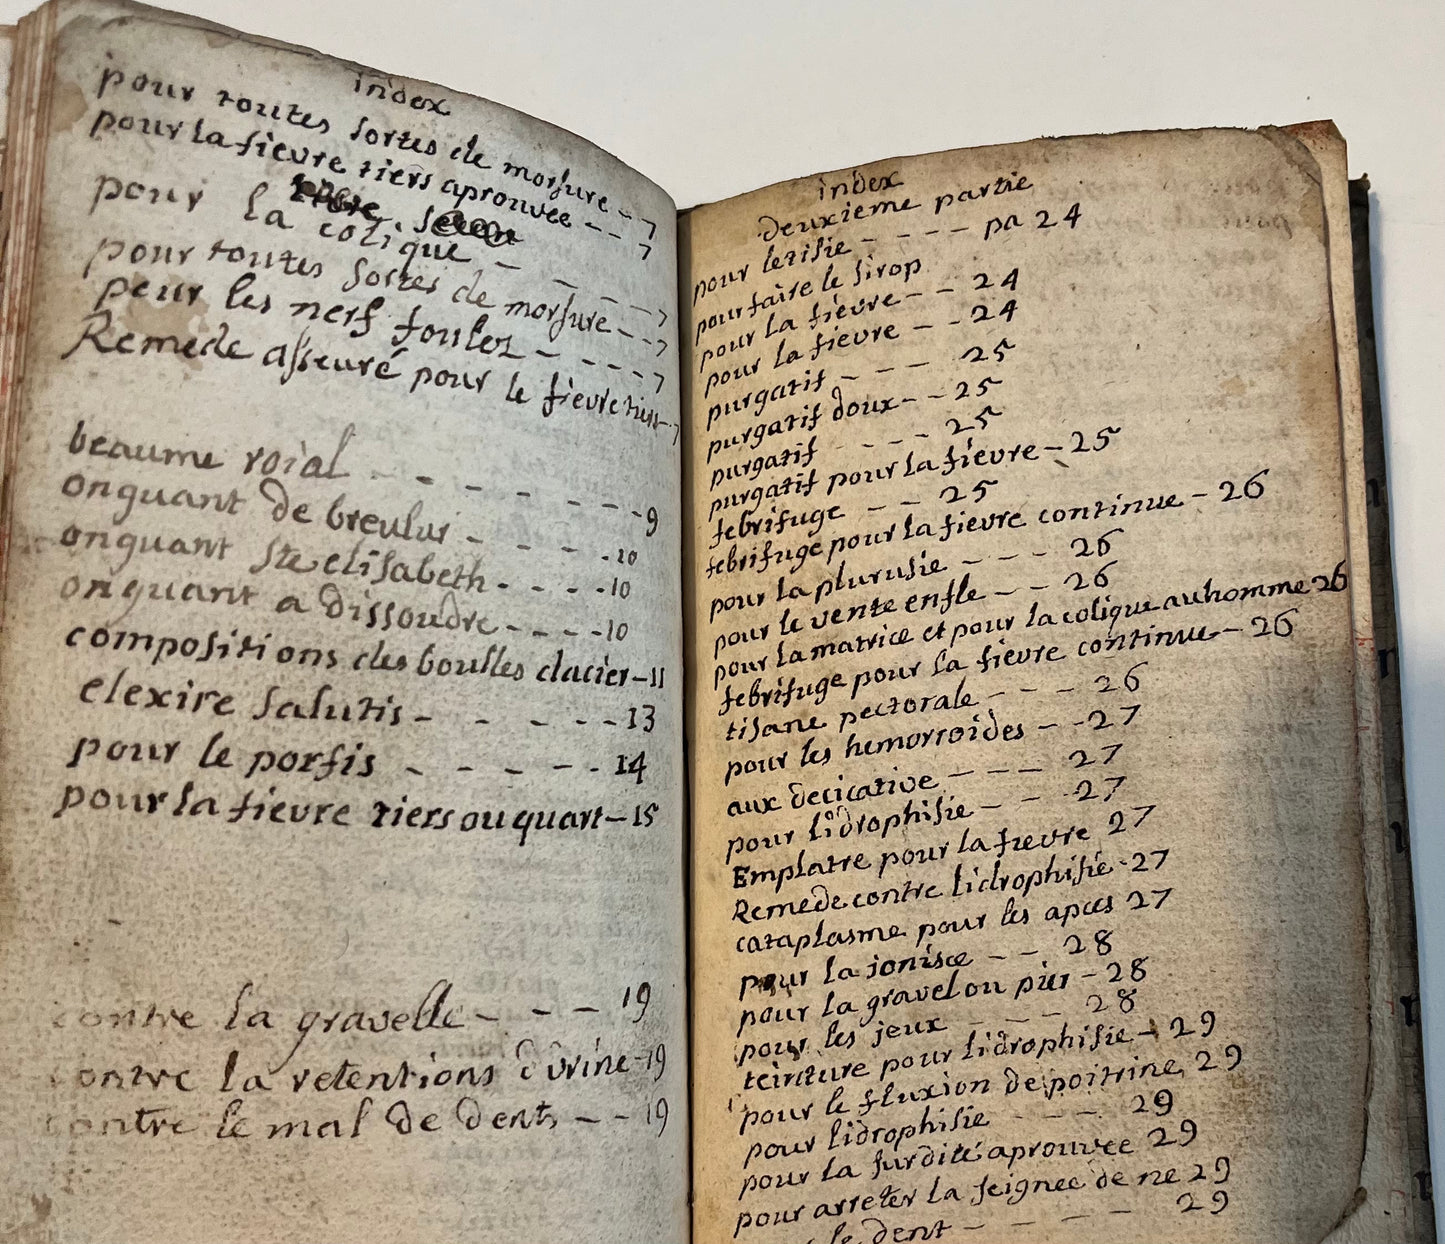 index
pour toutes sortes de morsure -- 7
pour la fievre tiers aprouvee --- 7
pour la colique ---- 7
pour toutes sortes de morsure -- 7
pour les nerf foulez ---- 7
Remede asseuré pour le fievre tiers -- 7
beaume roial ------- 9
onguant de breulur ---- 10
onguant ste elisabeth ---- 10
onguant a dissoudre ---- 10
compositions des boulles dacier - 11
elexire salutis ----- 13
pour le porfis ----- 14
pour la fievre tiers ou quart - 15
contre la gravelle --- 19
contre la retentions durine - 19
contre le mal de dents -- 19
index
deuxieme partie
pour leresie ---- pa 24
pour faire le sirop
pour la fievre -- 24
pour la fievre -- 24
purgatif --- 25
purgatif doux -- 25
purgatif ---- 25
purgatif pour la fievre - 25
febrifuge -- 25
febrifuge pour la fievre continue - 26
pour la plurusie --- 26
pour le vente enfle -- 26
pour la matrice et pour la colique au homme 26
febrifuge pour la fievre continue - 26
tisane pectorale --- 26
pour les hemorroides -- 27
aux decicative --- 27
pour lidrophisie --- 27
Emplatre pour la fievre 27
Remede contre lidrophisie - 27
cataplasme pour les apces 27
pour la jonisce -- 28
pour la gravel ou pier - 28
pour les jeux ---- 28
teincture pour lidrophisie - 29
pour le fluxion de poitrine 29
pour lidrophisie ---- 29
pour la surdité aprouvee 29
pour arreter la seignee de ne 29
le dent ---- 29